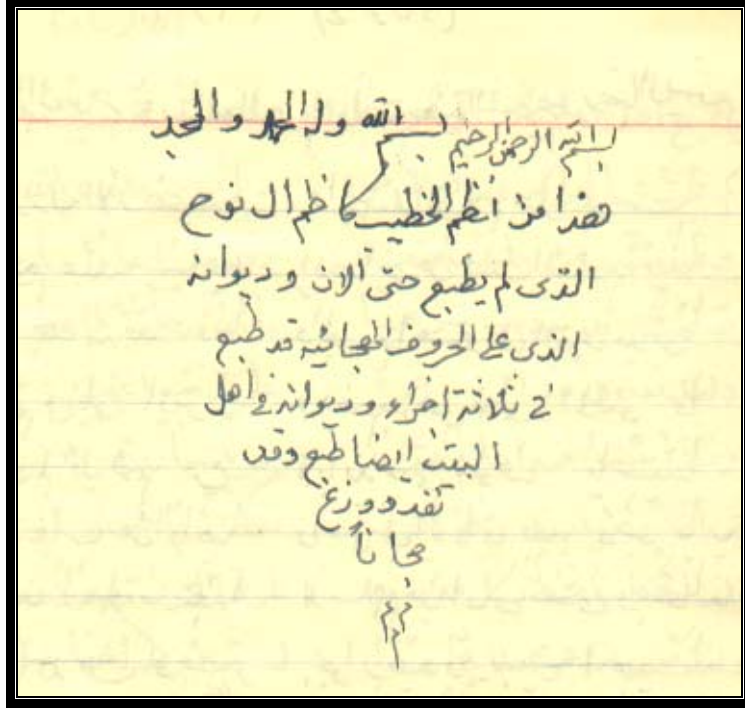 بسم الله الرحمن الرحيم بسم الله وله الحمد والمجد
هذا من نظم الخطيب كاظم ال نوح
الذى لم يطبع حتى الان وديوانه
الذى على الحروف الهجائيه قد طبع
فى ثلاثة اجزاء وديوانه فى اهل
البيت ايضا طبع وقد
نفد ووزع
مجاناً